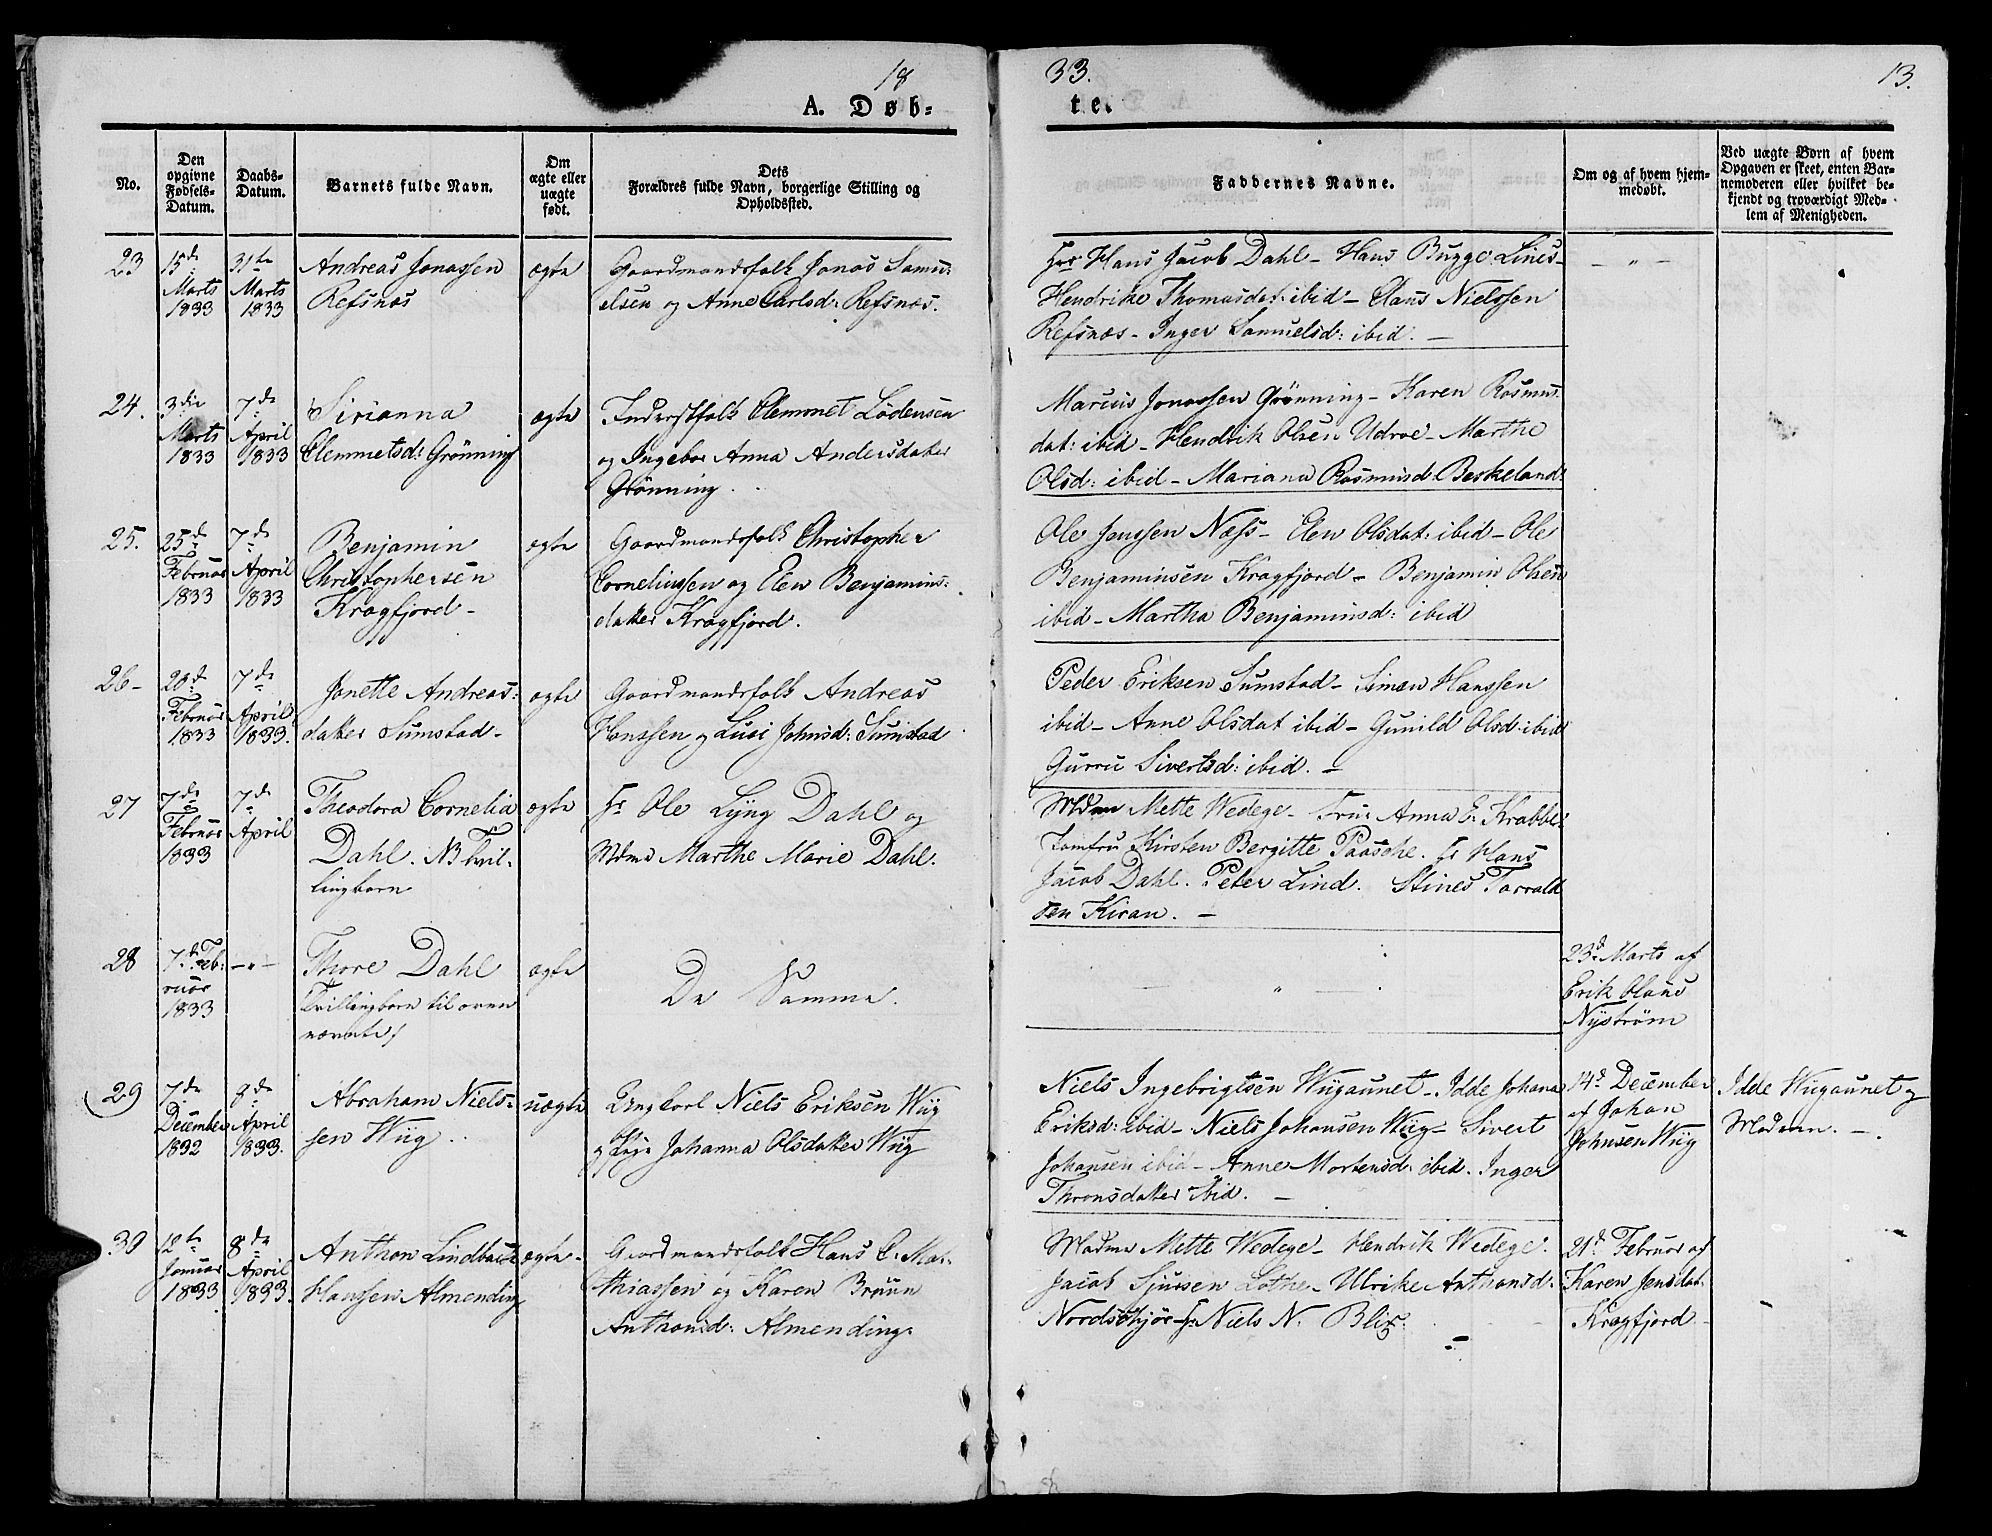 18
33.
13.
A. Døb-
te.
No.
Den
opgivne
Fødsels-
Datum.
Daabs-
Datum.
Barnets fulde Navn.
Om
ægte eller
uægte
født.
Dets
Forældres fulde Navn, borgerlige Stilling og
Opholdssted.
Faddernes Navne.
Om og af hvem hjem-
medøbt.
Ved uægte Børn af hvem
Opgaven er skeet, enten Bar-
nemoderen eller hvilket be-
kjendt og troværdigt Med-
lem af Menigheden.
23
15de
Marts
1833
31te
Marts
1833
Andreas Jonassen
Refsnæs
ægte
Gaardmandsfolk Jonas Samu-
elsen og Anne Carlsd: Refsnæs.
Hr Hans Jacob Dahl - Hans Bugge Lines-
Hendrike Thomasdat: ibid - Claus Nielssen
Refsnæs - Inger Samuelsd: ibid. -
- " -
24.
3die
Marts
1833
7de
April
1833
Sirianna
Clemmetsd: Grønning
ægte
Inderstfolk Clemmet Lødensen
og Ingebor Anna Andersdatter
Grønning.
Marius Jonassen Grønning - Karen Rasmus-
dat: ibid - Hendrik Olsen Udroe - Marthe
Olsd: ibid - Mariana Rasmusd: Beskeland:
25.
25de
Februar
1833
7de
April
1833
Benjamin
Christophersen
Kragfjord -
ægte
Gaardmandsfolk Christopher
Corneliussen og Elen Benjamins-
datter Kragfjord.
Ole Jenssen Næss - Elen Olsdat: ibid - Ole
Benjaminsen Kragfjord - Benjamin Olsen
ibid - Martha Benjaminsd: ibid
26 -
20de
Februar
1833
7de
April
1833.
Jonette Andreas-
datter Sumstad -
ægte
Gaardmandsfolk Andreas
Hanssen og Lusi Johnsd: Sumstad
Peder Eriksen Sumstad - Simon Hanssen
ibid - Anne Olsdat ibid - Gunild Olsd: ibid
Gurru Sivertsd: ibid. -
27
7de
Februar
1833
7de
April
Theodora Cornelia
Dahl. NB Tvil-
lingbarn
ægte
Hr Ole Lyng Dahl og
Mdme Marthe Marie Dahl.
Mdme Mette Wedege - Frue Anna E. Krabbe-
Jomfru Kirsten Bergitte Paasche. Hr Hans
Jacob Dahl. Peter Lind. Stines Torvald
sen Kiran. -
28
7de Feb-
ruar
1833
- " -
Thore Dahl
Tvillingbarn til oven
nævnte/
ægte
De Samme.
"
23de Marts af
Erik Olaus
Nystrøm
29
7de
December
1832
8de
April
1833.
Abraham Niels-
sen Wiig
uægte
Ungkarl Niels Eriksen Wiig
og Pige Johanna Olsdatter Wiig
Niels Ingebrigtsen Wiigaunet - Idde Johana
Eriksd: ibid - Niels Johansen Wiig - Sivert
Johansen ibid - Anne Mortensd: ibid. Inger
Thronsdatter ibid. -
14de December
af Johan
Johnsen Wiig
Idde Wiigaunet og
Moderen. -
30
12te
Januar
1833
8de
April
1833.
Anthon Lindbach
Hanssen Almending
ægte -
Gaardmandsfolk Hans C. Mat-
thiassen og Karen Bruun
Anthonid: Almending.
Madme Mette Wedege - Hendrik Wedege.
Jacob Sjurssen Lothe - Ulrike Anthonid:
Nordskjør - Hr Niels N. Blix.
21de Februar af
Karen Jensdat:
Kragfjord